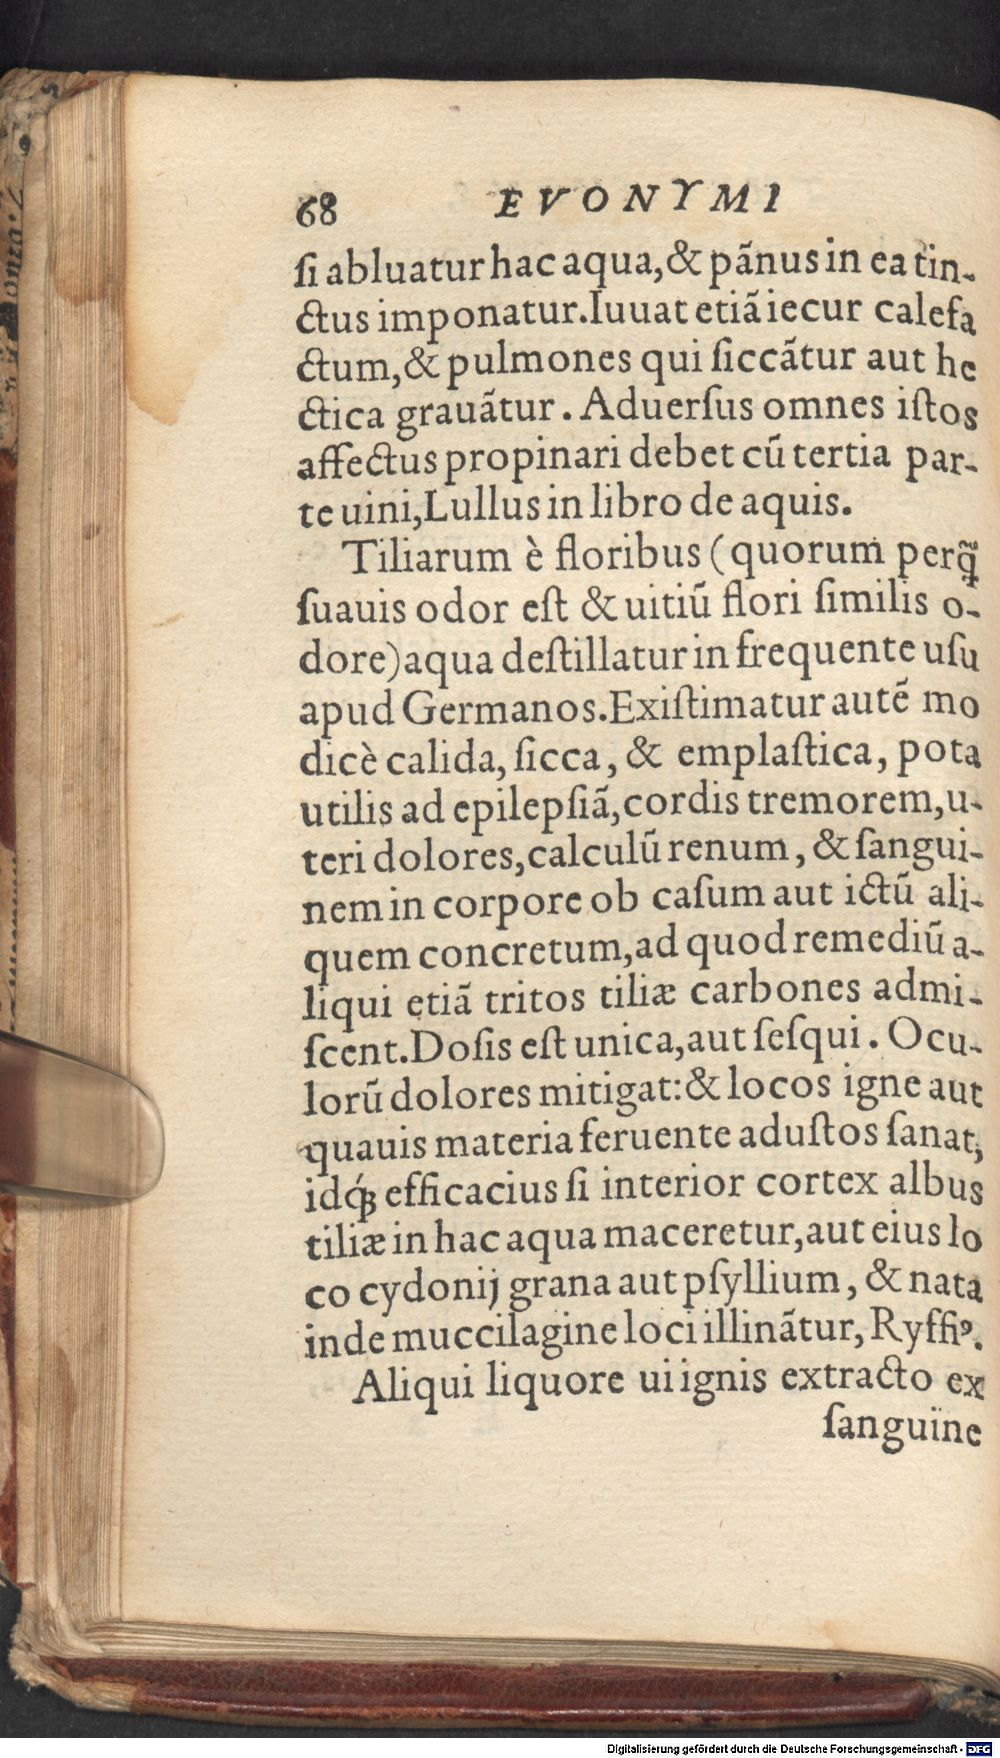 68 EVONYMI
ſi abluatur hac aqua, & pãnus in ea tin-
ctus imponatur. Iuuat etiã iecur calefa
ctum, & pulmones qui ſiccãtur aut he
ctica grauãtur. Aduerſus omnes iſtos
affectus propinari debet cũ tertia par-
te uini, Lullus in libro de aquis.
Tiliarum è floribus (quorum perq̃
ſuauis odor eſt & uitiũ flori ſimilis o-
dore) aqua deſtillatur in frequente uſu
apud Germanos. Exiſtimatur autẽ mo
dicè calida, ſicca, & emplaſtica, pota
utilis ad epilepſiã, cordis tremorem, u-
teri dolores, calculũ renum, & ſangui-
nem in corpore ob caſum aut ictũ ali-
quem concretum, ad quod remediũ a-
liqui etiã tritos tiliæ carbones admi-
ſcent. Doſis eſt unica, aut ſeſqui. Ocu-
lorũ dolores mitigat: & locos igne aut
quauis materia feruente aduſtos ſanat,
idq́ꝫ efficacius ſi interior cortex albus
tiliæ in hac aqua maceretur, aut eius lo
co cydonij grana aut pſyllium, & nata
inde muccilagine loci illinãtur, Ryffiꝰ.
Aliqui liquore ui ignis extracto ex
ſanguïne
Digitalisierung gefördert durch die Deutsche Forschungsgemeinschaft - DFG